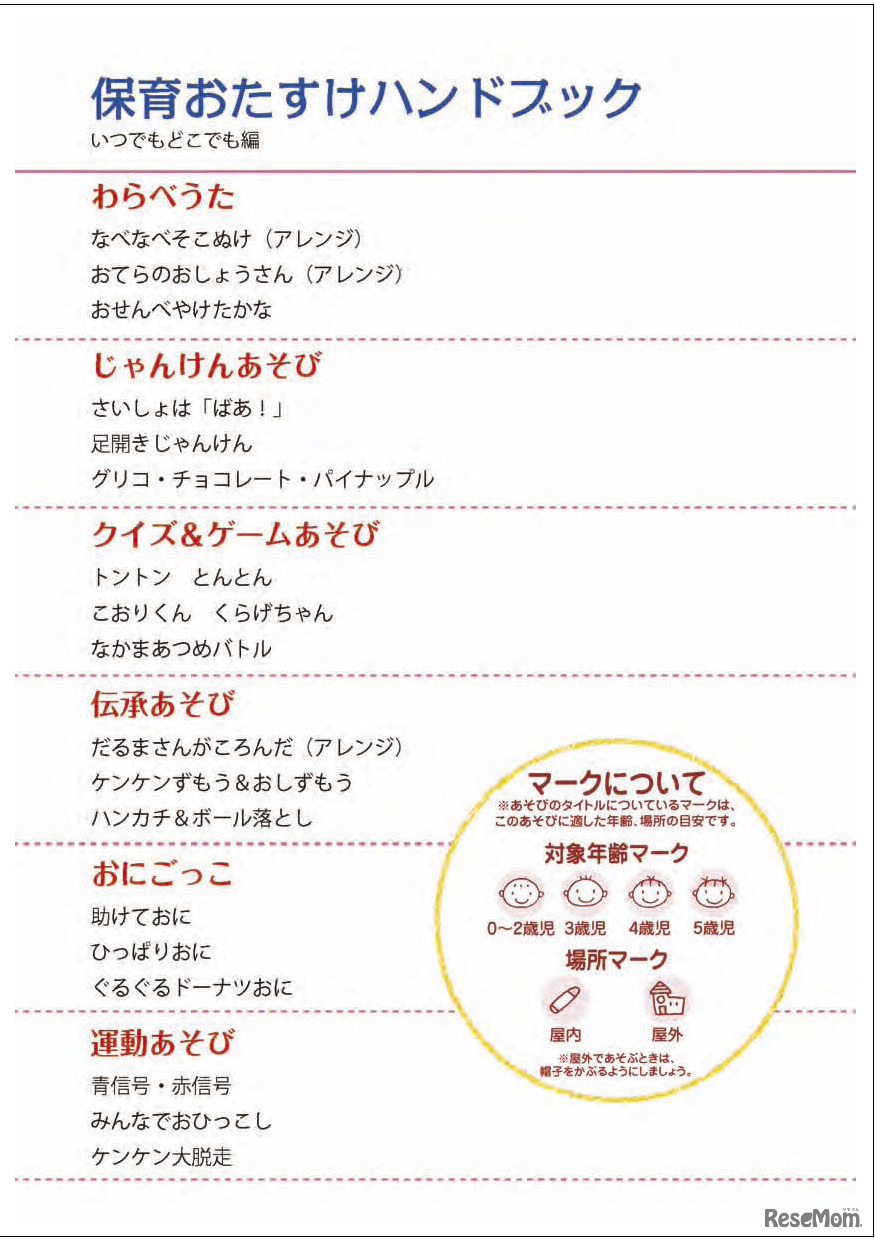 保育おたすけハンドブック
いつでもどこでも編
わらべうた
なべなべそこぬけ（アレンジ）
おてらのおしょうさん（アレンジ）
おせんべやけたかな
じゃんけんあそび
さいしょは「ばあ！」
足開きじゃんけん
グリコ・チョコレート・パイナップル
クイズ＆ゲームあそび
トントン　とんとん
こおりくん　くらげちゃん
なかまあつめバトル
伝承あそび
だるまさんがころんだ（アレンジ）
ケンケンずもう＆おしずもう
ハンカチ＆ボール落とし
おにごっこ
助けておに
ひっぱりおに
ぐるぐるドーナツおに
運動あそび
青信号・赤信号
みんなでおひっこし
ケンケン大脱走
マークについて
※あそびのタイトルについているマークは、
このあそびに適した年齢、場所の目安です。
対象年齢マーク
0～2歳児 3歳児 4歳児 5歳児
場所マーク
屋内 屋外
※屋外であそぶときは、
帽子をかぶるようにしましょう。
リセマム
ReseMom.